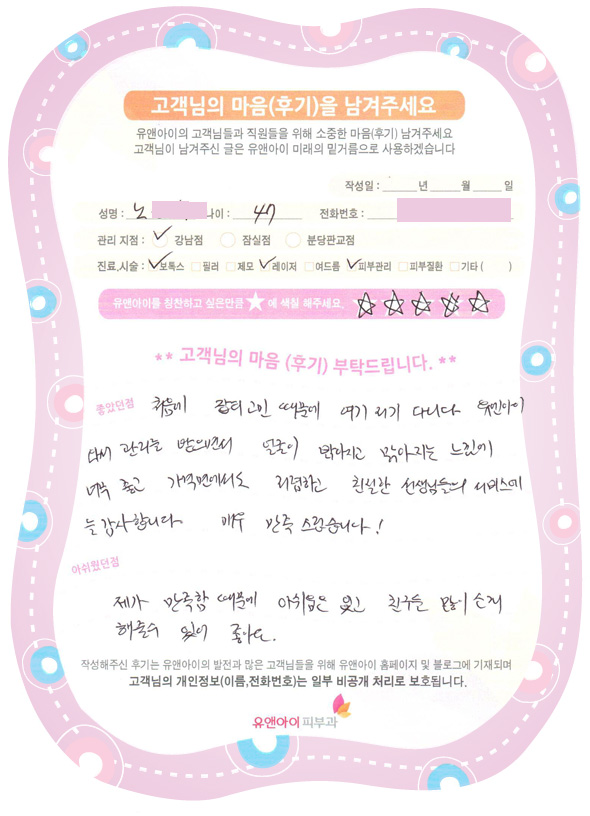 고객님의 마음(후기)을 남겨주세요
유앤아이의 고객님들과 직원들을 위해 소중한 마음(후기) 남겨주세요
고객님이 남겨주신 글은 유앤아이 미래의 밑거름으로 사용하겠습니다
작성일 : 년 월 일
성명 : 노 나이 : 47 전화번호 :
관리 지점 : 강남점 잠실점 분당판교점
진료,시술 : 보톡스 필러 제모 레이저 여드름 피부관리 피부질환 기타 ( )
유앤아이를 칭찬하고 싶은만큼 ★ 에 색칠 해주세요.
** 고객님의 마음 (후기) 부탁드립니다. **
좋았던점 처음에 잡티고민 때문에 여기 저기 다니다 유앤아이
다시 관리를 받으면서 얼굴이 밝아지고 맑아지는 느낌에
너무 좋고 가격면에서도 저렴하고 친절한 선생님들의 서비스에
늘 감사합니다 매우 만족 스럽습니다!
아쉬웠던점
제가 만족함 때문에 아쉬움은 없고 친구들 많이 소개
해줄수 있어 좋아요.
작성해주신 후기는 유앤아이의 발전과 많은 고객님들을 위해 유앤아이 홈페이지 및 블로그에 기재되며
고객님의 개인정보(이름,전화번호)는 일부 비공개 처리로 보호됩니다.
유앤아이피부과